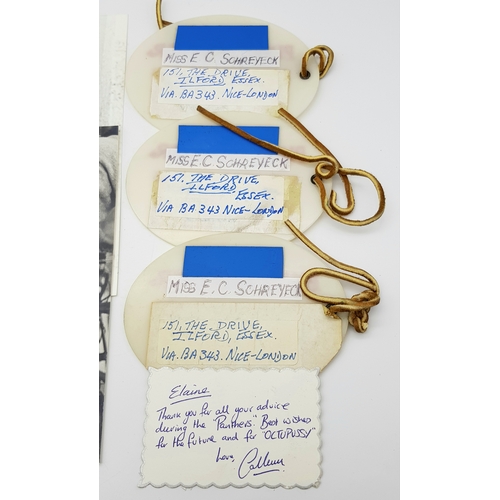 MISS E C SCHREYECK
151, THE DRIVE,
ILFORD, ESSEX.
VIA. BA 343. NICE-LONDON
MISS E.C SCHREYECK
151, THE DRIVE,
ILFORD,
ESSEX.
VIA BA 343 NICE-LONDON
MISS E.C SCHREYECK
151, THE DRIVE,
ILFORD, ESSEX.
VIA. BA 343. NICE-LONDON
Elaine
Thank you for all your advice
during the "Panthers". Best wishes
for the future and for "OCTUPUSSY"
Love,